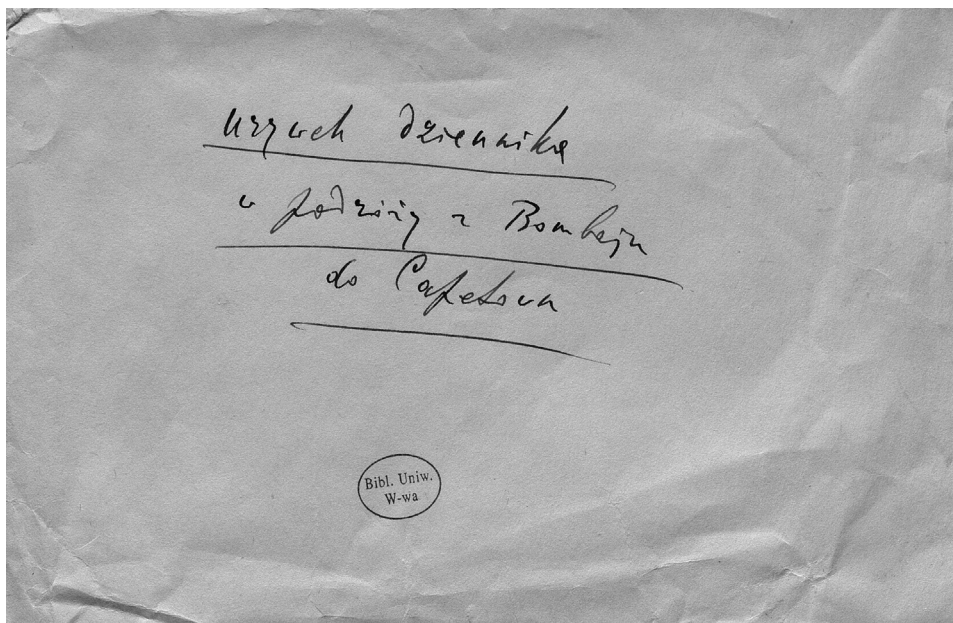 urywek dziennika
w podróży z Bombaju
do Capetown
Bibl. Uniw.
W-wa